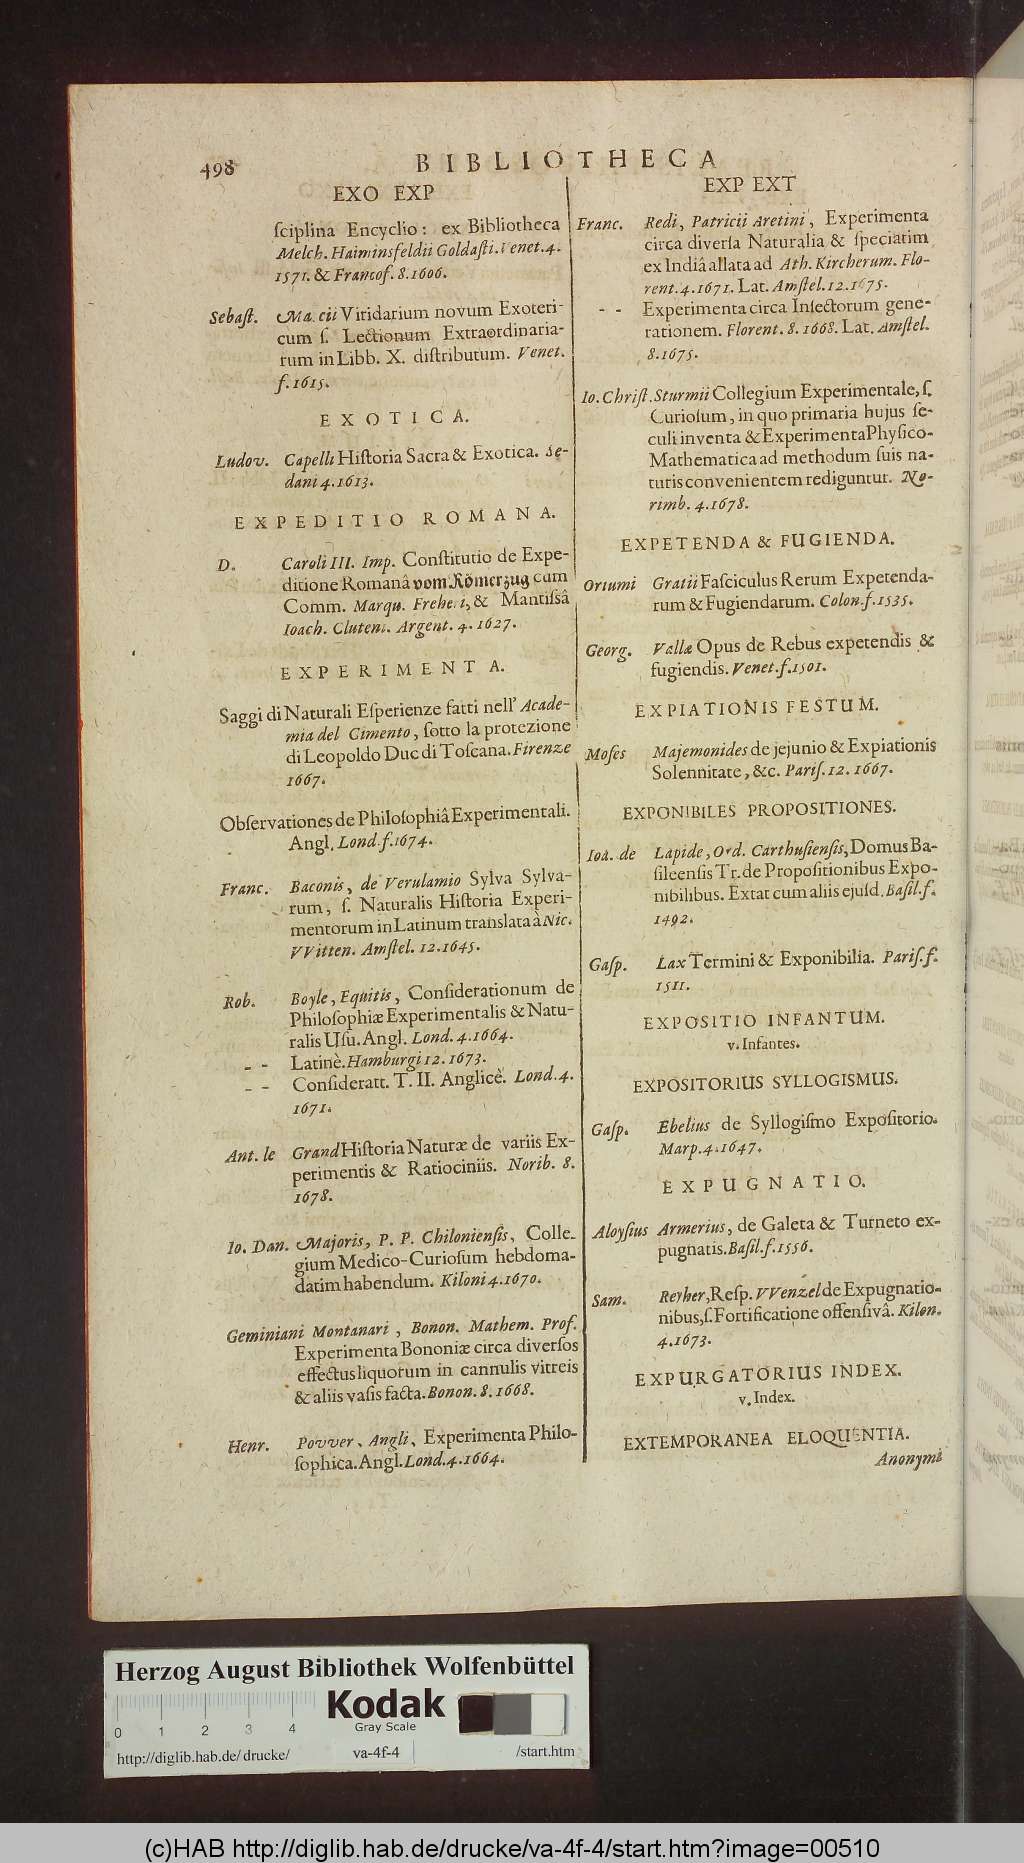 498
BIBLIOTHECA
EXO EXP
ſciplina Encyclio: ex Bibliotheca
Melch. Haiminsfeldii Goldaſti. Venet. 4.
1571. & Francof. 8. 1606.
Sebaſt. Viridarium novum Exoteri-
cum ſ. Lectionum Extraordinaria-
rum in Libb. X. diſtributum. Venet.
f. 1615.
EXOTICA.
Ludov. Capelli Hiſtoria Sacra & Exotica. Se-
dani 4. 1613.
EXPEDITIO ROMANA.
D. Caroli III. Imp. Conſtitutio de Expe-
ditione Romanâ vom Römerzug cum
Comm. Marqu. Freheri, & Mantiſsâ
Ioach. Cluteni. Argent. 4. 1627.
EXPERIMENTA.
Saggi di Naturali Eſperienze fatti nell' Acade-
mia del Cimento, ſotto la protezione
di Leopoldo Duc di Toſcana. Firenze
1667.
Obſervationes de Philoſophiâ Experimentali.
Angl. Lond. f. 1674.
Franc. Baconis, de Verulamio Sylva Sylva-
rum, ſ. Naturalis Hiſtoria Experi-
mentorum in Latinum translata à Nic.
VVitten. Amſtel. 12. 1645.
Rob. Boyle, Equitis, Conſiderationum de
Philoſophiæ Experimentalis & Natu-
ralis Uſu. Angl. Lond. 4. 1664.
- - Latinè. Hamburgi 12. 1673.
- - Conſideratt. T. II. Anglicè. Lond. 4.
1671.
Ant. le Grand Hiſtoria Naturæ de variis Ex-
perimentis & Ratiociniis. Norib. 8.
1678.
Io. Dan. Majoris, P. P. Chilonienſis, Colle-
gium Medico-Curioſum hebdoma-
datim habendum. Kiloni 4. 1670.
Geminiani Montanari, Bonon. Mathem. Prof.
Experimenta Bononiæ circa diverſos
effectus liquorum in cannulis vitreis
& aliis vaſis facta. Bonon. 8. 1668.
Henr. Povver, Angli, Experimenta Philo-
ſophica. Angl. Lond. 4. 1664.
EXP EXT
Franc. Redi, Patricii Aretini, Experimenta
circa diverſa Naturalia & ſpeciatim
ex Indiâ allata ad Ath. Kircherum. Flo-
rent. 4. 1671. Lat. Amſtel. 12. 1675.
- - Experimenta circa Inſectorum gene-
rationem. Florent. 8. 1668. Lat. Amſtel.
8. 1675.
Io. Chriſt. Sturmii Collegium Experimentale, ſ.
Curioſum, in quo primaria hujus ſe-
culi inventa & Experimenta Phyſico-
Mathematica ad methodum ſuis na-
turis convenientem rediguntur. No-
rimb. 4. 1678.
EXPETENDA & FUGIENDA.
Ortumi Gratii Faſciculus Rerum Expetenda-
rum & Fugiendarum. Colon. f. 1535.
Georg. Vallæ Opus de Rebus expetendis &
fugiendis. Venet. f. 1501.
EXPIATIONIS FESTUM.
Moſes Majemonides de jejunio & Expiationis
Solennitate, &c. Pariſ. 12. 1667.
EXPONIBILES PROPOSITIONES.
Ioa. de Lapide, Ord. Carthuſienſis, Domus Ba-
ſileenſis Tr. de Propoſitionibus Expo-
nibilibus. Extat cum aliis ejuſd. Baſil. f.
1492.
Gaſp. Lax Termini & Exponibilia. Pariſ. f.
1511.
EXPOSITIO INFANTUM.
v. Infantes.
EXPOSITORIUS SYLLOGISMUS.
Gaſp. Ebelius de Syllogiſmo Expoſitorio.
Marp. 4. 1647.
EXPUGNATIO.
Aloyſius Armerius, de Galeta & Turneto ex-
pugnatis. Baſil. f. 1556.
Sam. Reyher, Reſp. VVenzel de Expugnatio-
nibus, ſ. Fortificatione offenſivâ. Kilon.
4. 1673.
EXPURGATORIUS INDEX.
v. Index.
EXTEMPORANEA ELOQUENTIA.
Anonymi
Herzog August Bibliothek Wolfenbüttel
Kodak
Gray Scale
0 1 2 3 4
http://diglib.hab.de/drucke/ va-4f-4 /start.htm
(c)HAB http://diglib.hab.de/drucke/va-4f-4/start.htm?image=00510